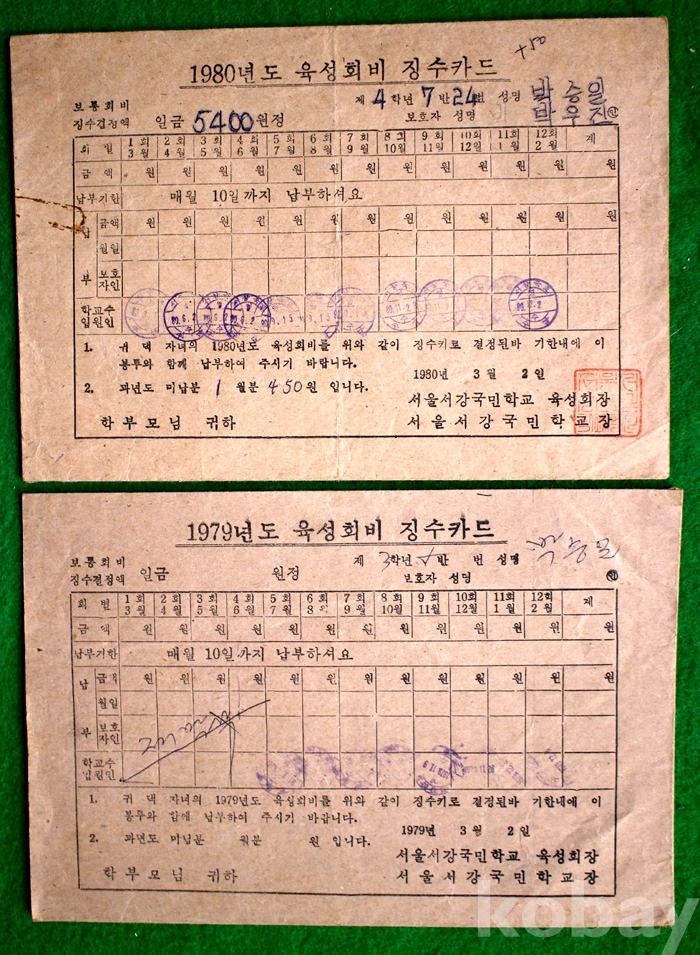 +50
1980년도 육성회비 징수카드
제 4 학년 7 반 24번 성명 박승일
보통회비
징수결정액 일금 5400원정 보호자 성명 박우진 ㊞
회 별 1회 3월 2회 4월 3회 5월 4회 6월 5회 7월 6회 8월 7회 9월 8회 10월 9회 11월 10회 12월 11회 1월 12회 2월 계
금 액 원 원 원 원 원 원 원 원 원 원 원 원 원
납부기한 매월 10일까지 납부하셔요
납부 금액 원 원 원 원 원 원 원 원 원 원 원 원 원
월일
보호자인
학교수입원인
1. 귀 댁 자녀의 1980년도 육성회비를 위와 같이 징수키로 결정된바 기한내에 이
봉투와 함께 납부하여 주시기 바랍니다.
1980년 3월 2일
2. 과년도 미납분 1 월분 450원 입니다.
서울서강국민학교 육성회장
학부모님 귀하 서울서강국민학교장
1979년도 육성회비 징수카드
보통회비 제 3학년 반 번 성명
징수결정액 일금 원정 보호자 성명 ㊞
회 별 1회 3월 2회 4월 3회 5월 4회 6월 5회 7월 6회 8월 7회 9월 8회 10월 9회 11월 10회 12월 11회 1월 12회 2월 계
금 액 원 원 원 원 원 원 원 원 원 원 원 원 원
납부기한 매월 10일까지 납부하셔요
납부 금액 원 원 원 원 원 원 원 원 원 원 원 원 원
월일
보호자인
학교수입원인
1. 귀 댁 자녀의 1979년도 육성회비를 위와 같이 징수키로 결정된바 기한내에 이
봉투와 함께 납부하여 주시기 바랍니다.
1979년 3월 2일
2. 과년도 미납분 월분 원 입니다.
서울서강국민학교 육성회장
학부모님 귀하 서울서강국민학교장
kobay